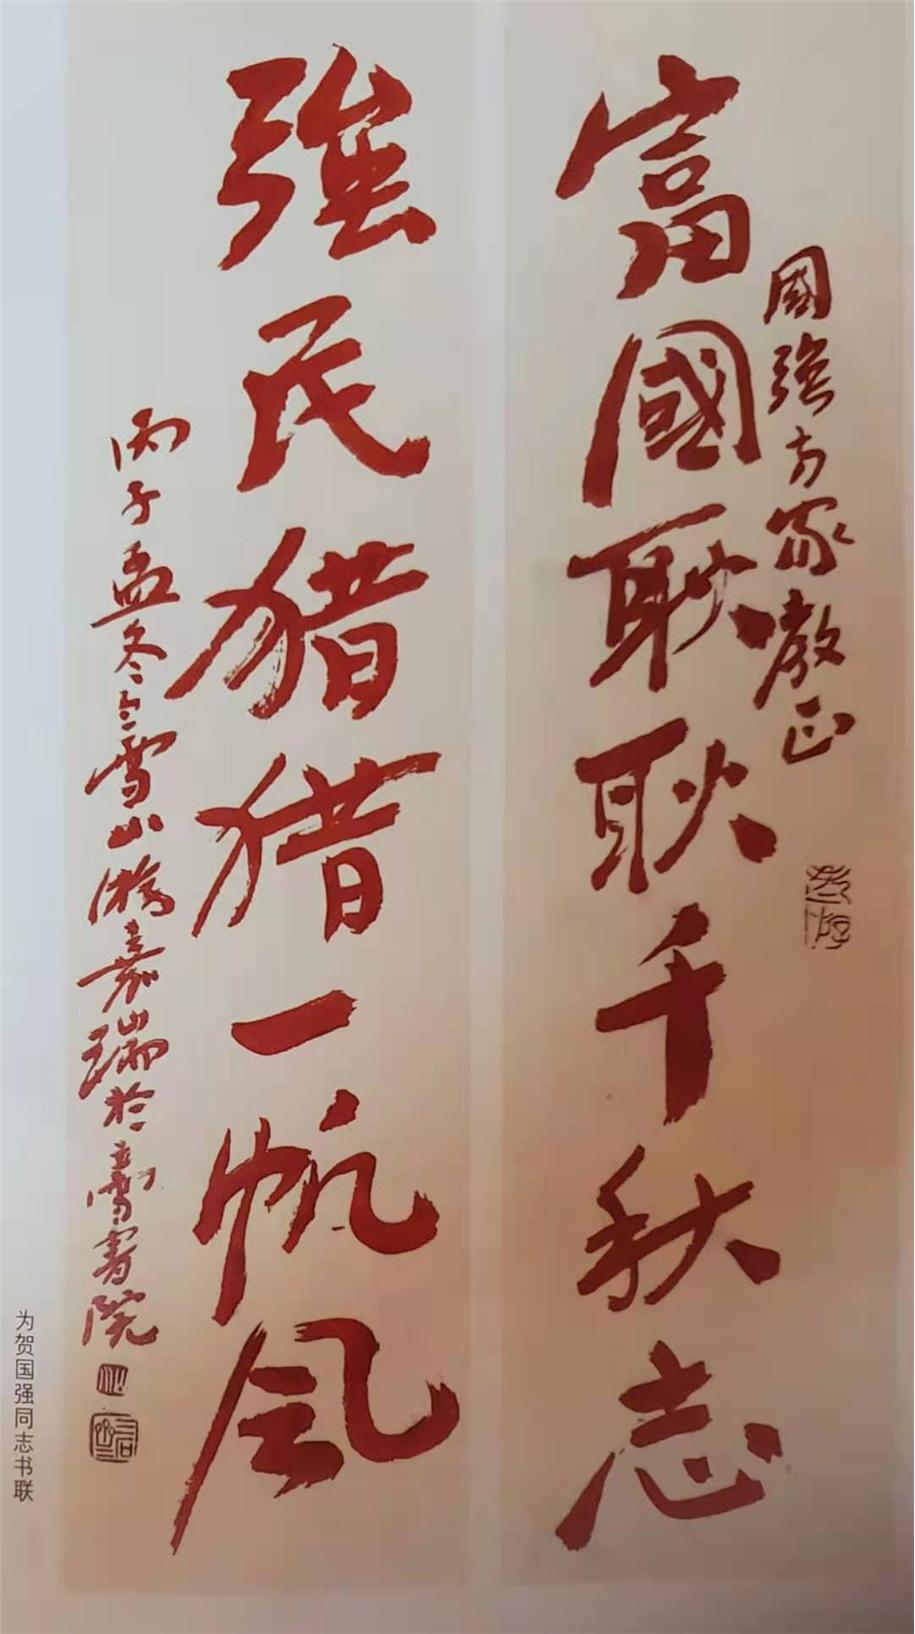 國強方家教正
富國耿耿千秋志
強民猎猎一帆風
丙子孟冬雪山游嘉瑞於書院
为贺国强同志书联